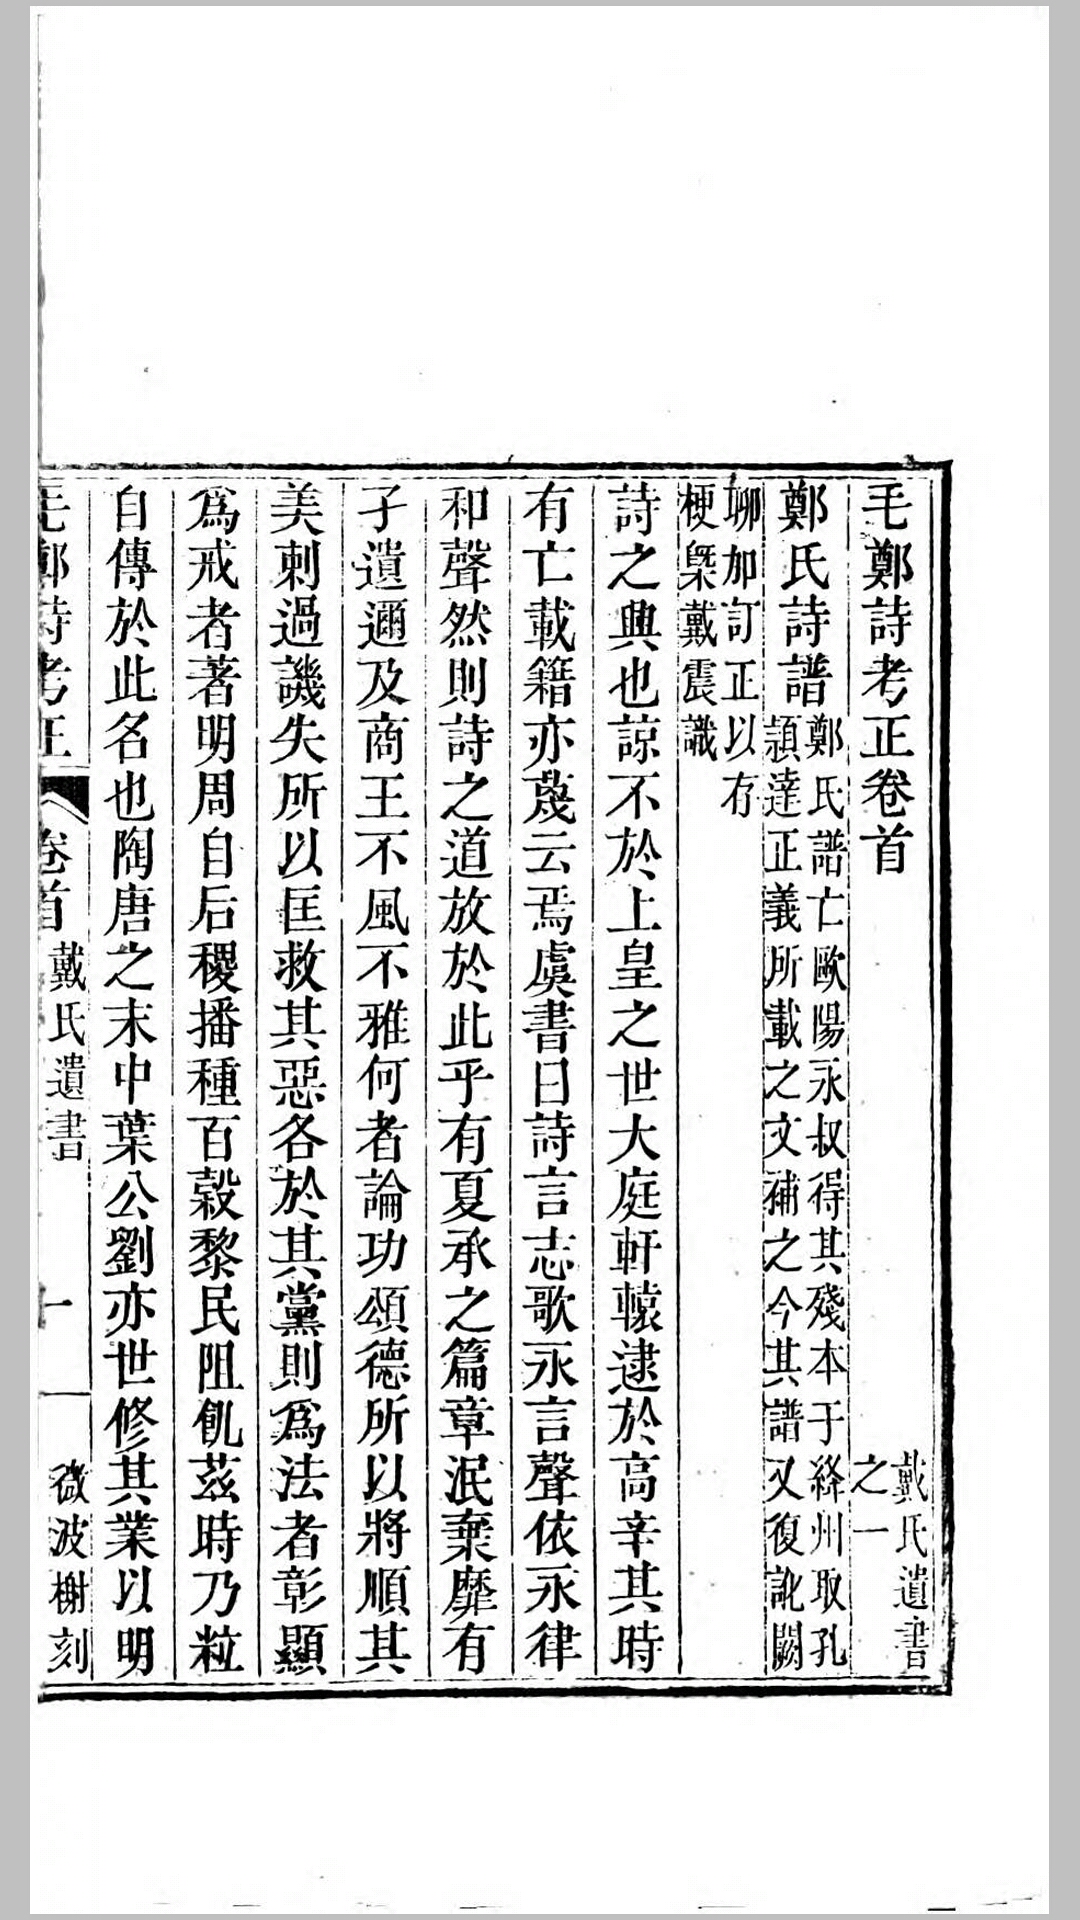 毛鄭詩考正卷首
戴氏遺書
之一
鄭氏詩譜
鄭氏譜亡歐陽永叔得其殘本于絳州取孔
穎達正義所載之文補之今其譜又復訛闕
聊加訂正以存
梗槩戴震識
詩之興也諒不於上皇之世大庭軒轅逮於高辛其時
有亡載籍亦蔑云焉虞書曰詩言志歌永言聲依永律
和聲然則詩之道放於此乎有夏承之篇章泯棄靡有
孑遺邇及商王不風不雅何者論功頌德所以將順其
美刺過譏失所以匡救其惡各於其黨則爲法者彰顯
爲戒者著明周自后稷播種百穀黎民阻飢茲時乃粒
自傳於此名也陶唐之末中葉公劉亦世修其業以明
毛鄭詩考正
卷首
戴氏遺書
一
微波榭刻